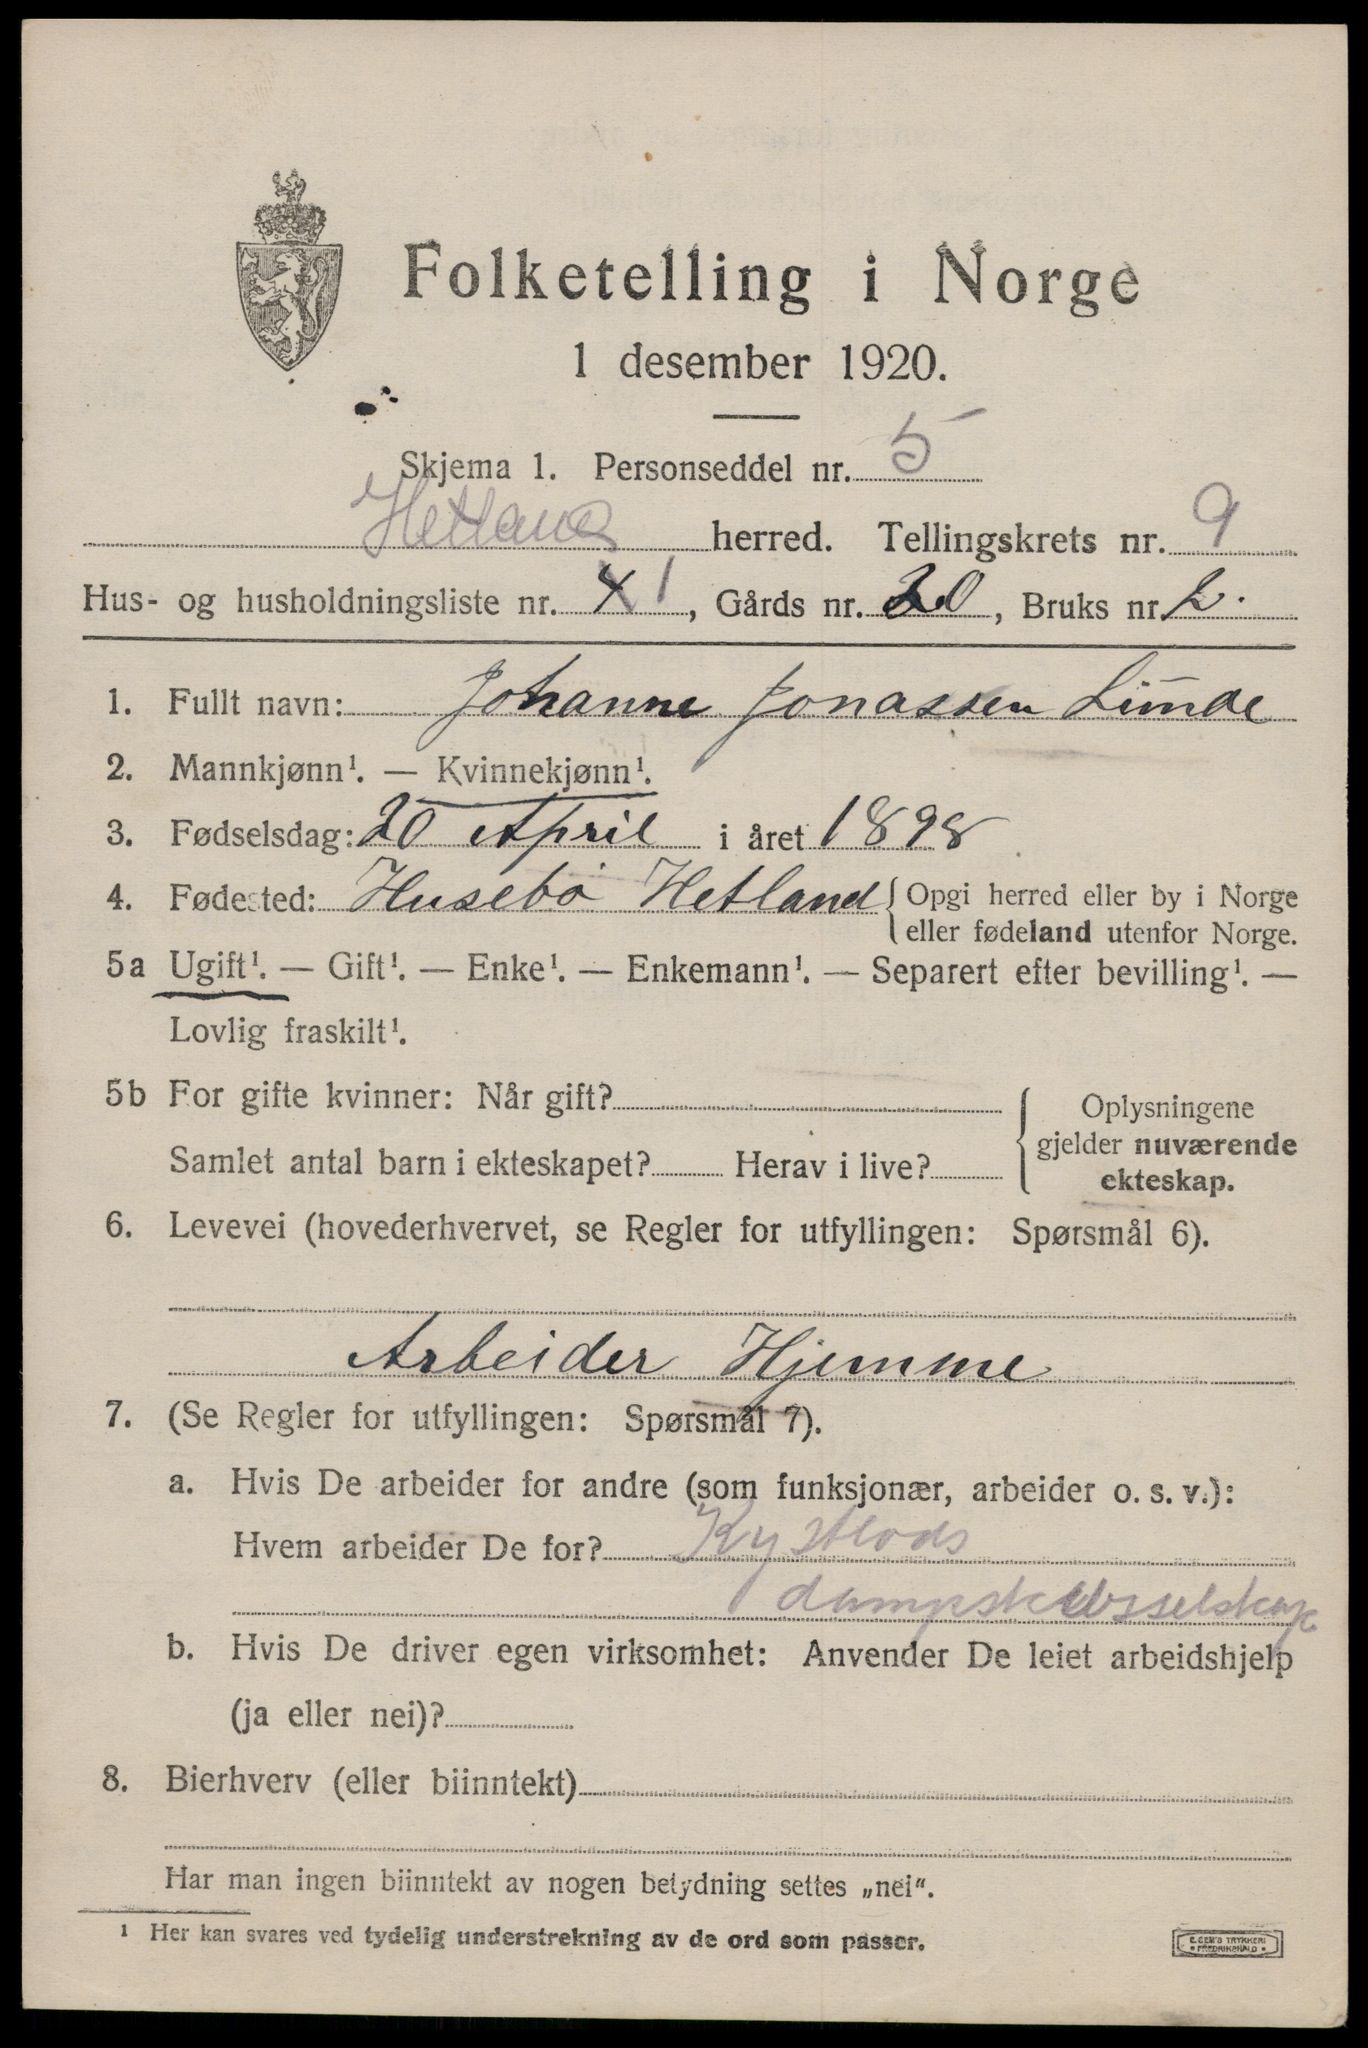 Folketelling i Norge
1 desember 1920.
Skjema 1. Personseddel nr. 5
Hetland herred. Tellingskrets nr. 9
Hus- og husholdningsliste nr. 41, Gårds nr. 20, Bruks nr. 2.
1. Fullt navn: Johanne Jonassen Limde
2. Mannkjønn¹. — Kvinnekjønn¹.
3. Fødselsdag: 20 April i året 1898
4. Fødested: Husebø Hetland { Opgi herred eller by i Norge
eller fødeland utenfor Norge.
5a Ugift¹. — Gift¹. — Enke¹. — Enkemann¹. — Separert efter bevilling¹. —
Lovlig fraskilt¹.
5b For gifte kvinner: Når gift? { Oplysningene
gjelder nuværende
Samlet antal barn i ekteskapet? Herav i live?
ekteskap.
6. Levevei (hovederhvervet, se Regler for utfyllingen: Spørsmål 6).
Arbeider Hjemme
7. (Se Regler for utfyllingen: Spørsmål 7).
a. Hvis De arbeider for andre (som funksjonær, arbeider o. s. v.):
Hvem arbeider De for? Kystlods
dampskibsselskap.
b. Hvis De driver egen virksomhet: Anvender De leiet arbeidshjelp
(ja eller nei)?
8. Bierhverv (eller biinntekt)
Har man ingen biinntekt av nogen betydning settes „nei“.
¹ Her kan svares ved tydelig understrekning av de ord som passer.
E. SEM'S TRYKKERI
• FREDRIKSHALD •